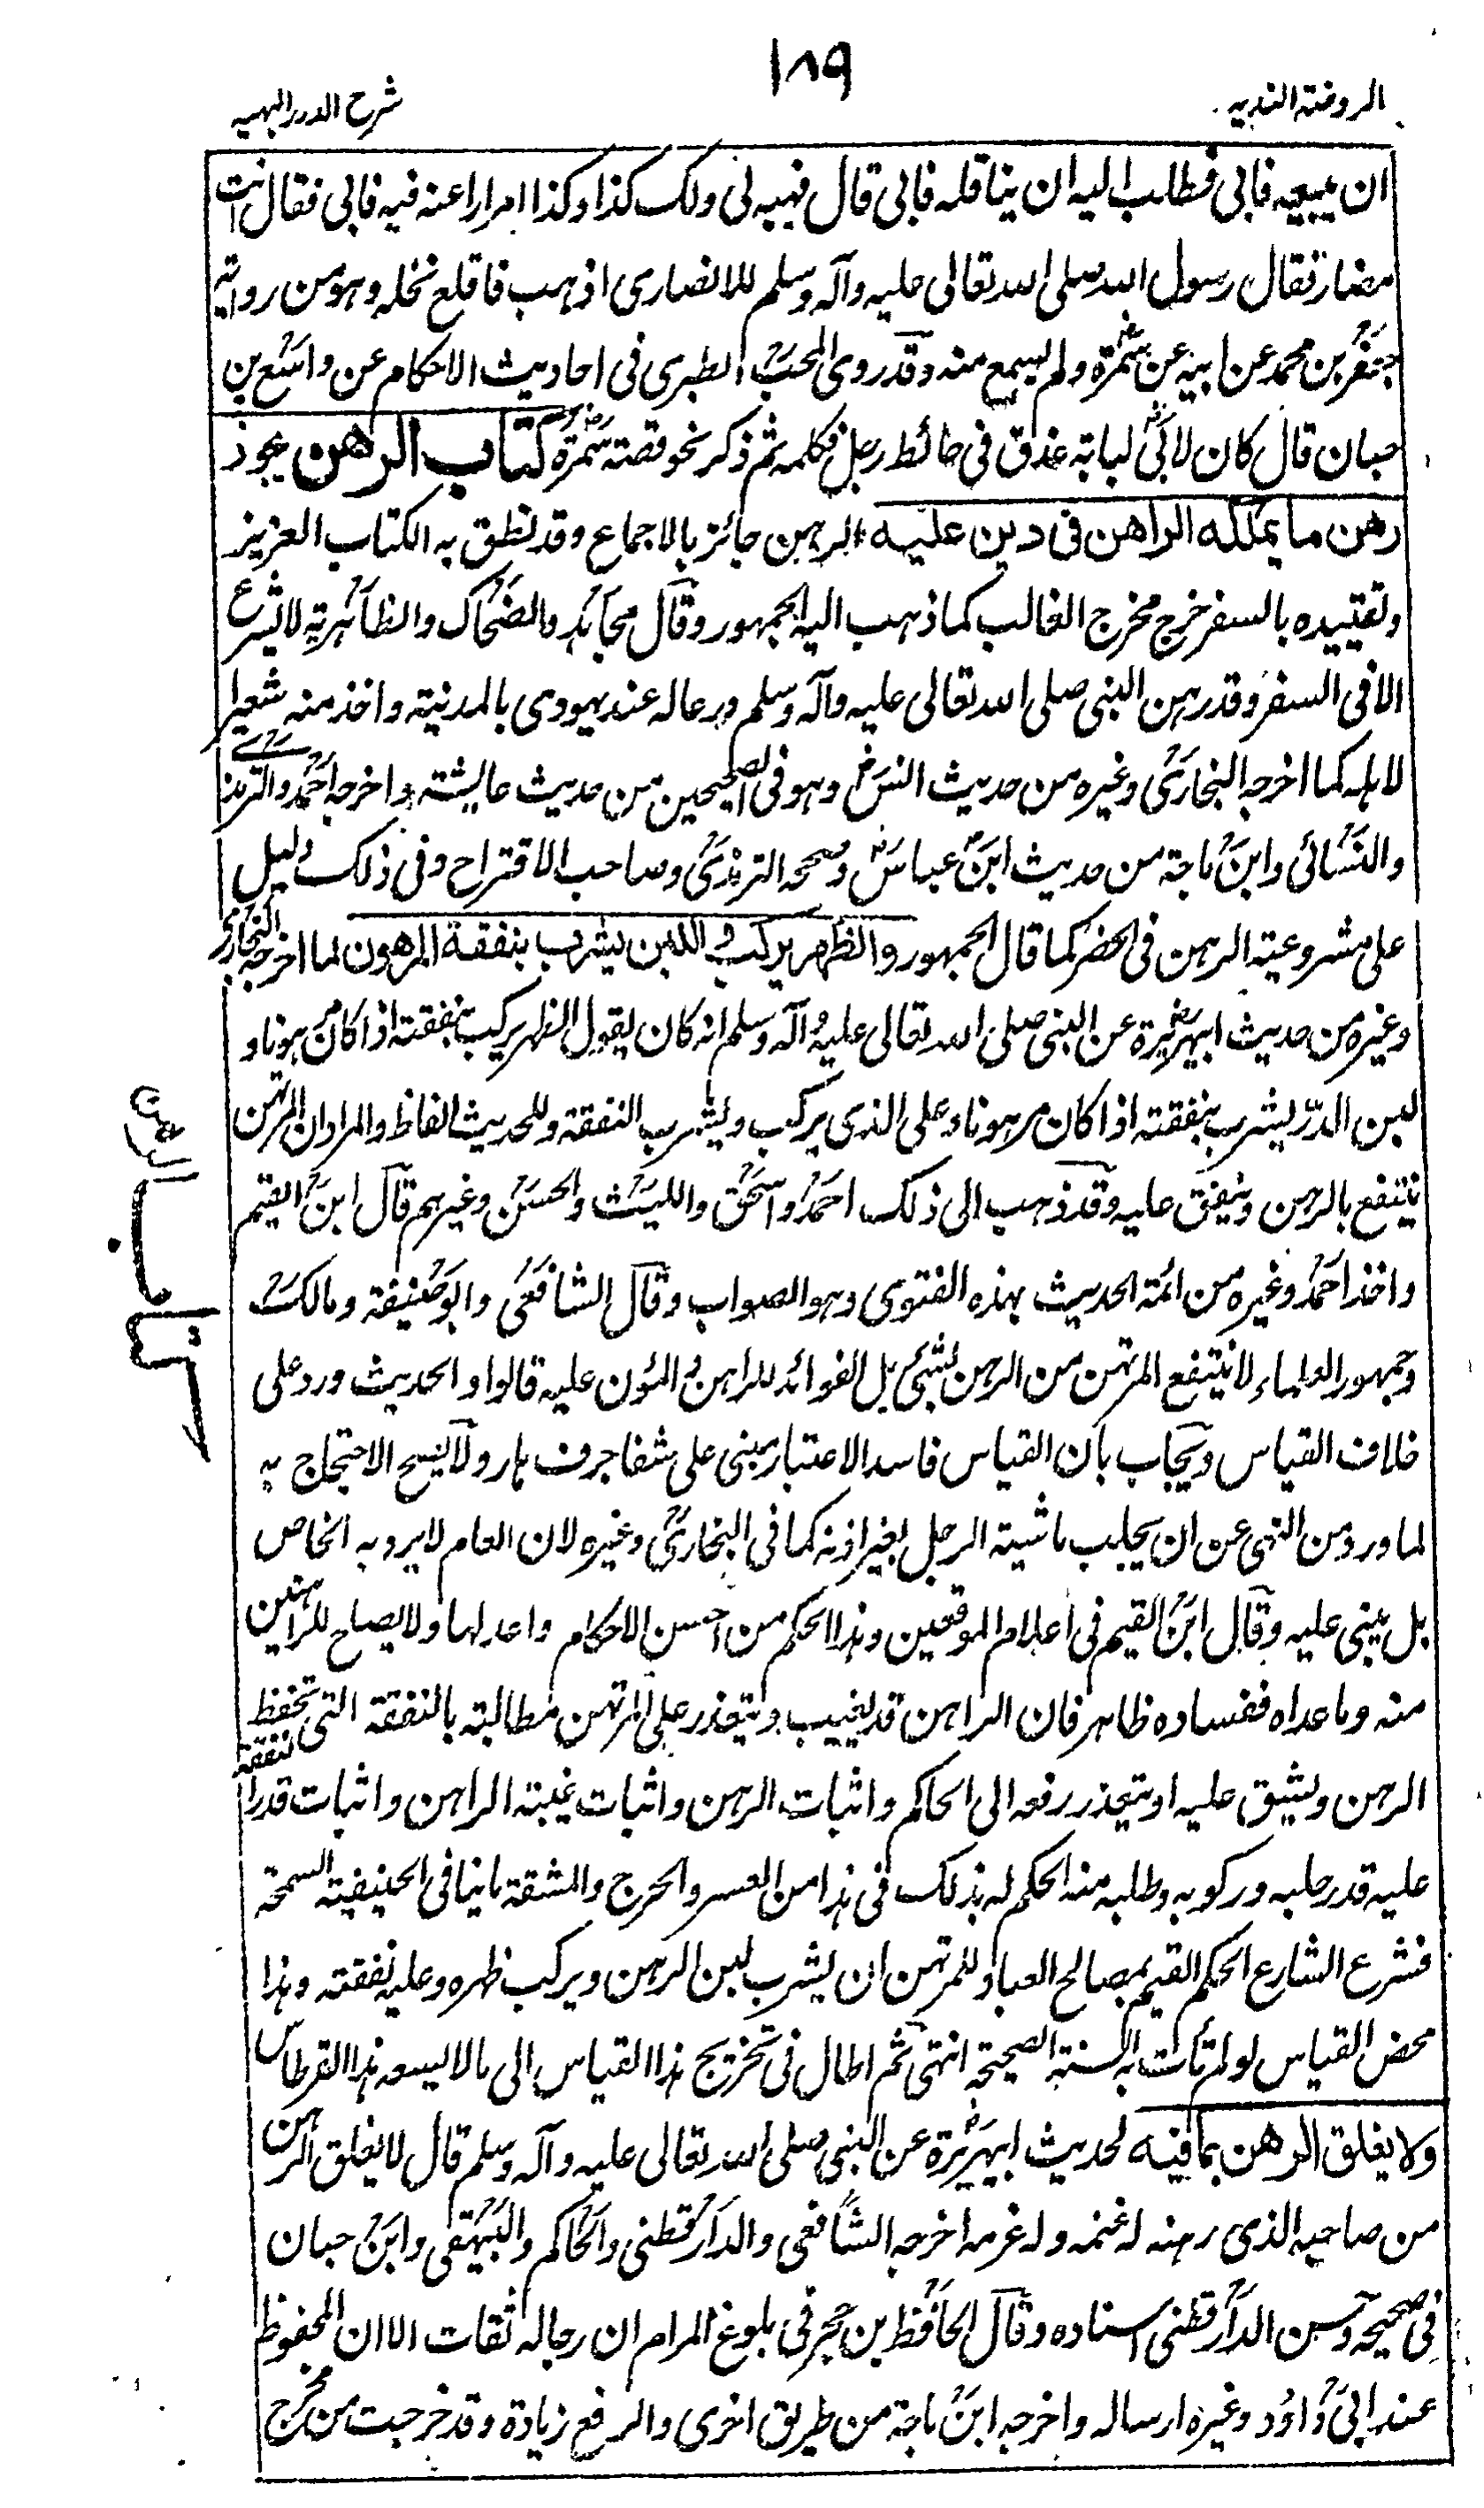 ١٨٩
الروضة الندية
شرح الدرر البهية
ان يبيعه فابى فطلب اليه ان يناقله فابى قال فهبه لى ولك كذا وكذا امرا راعنه فيه فابى فقال انت
مضار فقال رسول الله صلى الله تعالى عليه وآله وسلم للانصارى اذهب فاقلع نخله وهو من رواية
جعفر بن محمد عن ابيه عن سمرة ولم يسمع منه وقد روى المحب الطبرى فى احاديث الاحكام عن واسع بن
حبان قال كان لابى لبابة عذق فى حائط رجل فكلمه ثم ذكر نحو قصة سمرة كتاب الرهن يجوز
رهن ما يملكه الراهن فى دين عليه الرهن جائز بالاجماع وقد نطق به الكتاب العزيز
وتقييده بالسفر خرج مخرج الغالب كما ذهب اليه الجمهور وقال مجاهد والضحاك والظاهرية لا يشرع
الا فى السفر وقد رهن النبى صلى الله تعالى عليه وآله وسلم درعا له عند يهودى بالمدينة واخذ منه شعيرا
لاهله كما اخرجه البخارى وغيره من حديث انس وهو فى الصحيحين من حديث عايشة واخرجه احمد والترمذى
والنسائى وابن ماجة من حديث ابن عباس وصححه الترمذى وصاحب الاقتراح وفى ذلك دليل
على مشروعية الرهن فى الحضر كما قال الجمهور والظهر يركب واللبن يشرب بنفقة المرهون لما اخرجه البخارى
وغيره من حديث ابى هريرة عن النبى صلى الله تعالى عليه وآله وسلم انه كان يقول الظهر يركب بنفقته اذا كان مرهونا و
لبن الدر يشرب بنفقته اذا كان مرهونا وعلى الذى يركب ويشرب النفقة وللحديث الفاظ والمراد ان المرتهن
ينتفع بالرهن وينفق عليه وقد ذهب الى ذلك احمد واسحق والليث والحسن وغيرهم قال ابن القيم
واخذ احمد وغيره من ائمة الحديث بهذه الفتوى وهو الصواب وقال الشافعى وابو حنيفة ومالك
وجمهور العلماء لا ينتفع المرتهن من الرهن بشئ بل الفوائد للراهن والمؤن عليه قالوا والحديث ورد على
خلاف القياس ويجاب بان القياس فاسد الاعتبار مبنى على شفا جرف هار ولا يصح الاحتجاج به
لما ورد من النهى عن ان يحلب ماشية الرجل بغير اذنه كما فى البخارى وغيره لان العام لا يرد به الخاص
بل يبنى عليه وقال ابن القيم فى اعلام الموقعين وهذا الحكم من احسن الاحكام واعدلها ولا يصلح للراهنين
منه وما عداه ففساده ظاهر فان الراهن قد يغيب ويتعذر على المرتهن مطالبته بالنفقة التى تحفظ
الرهن ويشق عليه او يتعذر رفعه الى الحاكم واثبات الرهن واثبات غيبة الراهن واثبات قدر نفقته
عليه قدر حلبه وركوبه وطلبه منه الحكم له بذلك فى هذا من العسر والحرج والمشقة ما ينافى الحنيفية السمحة
فشرع الشارع الحكيم القيم بمصالح العباد للمرتهن ان يشرب لبن الرهن ويركب ظهره وعليه نفقته وهذا
محض القياس لو لم تأت به السنة الصحيحة انتهى ثم اطال فى تخريج هذا القياس الى ما لا يسعه هذا القرطاس
ولا يغلق الرهن بما فيه لحديث ابى هريرة عن النبى صلى الله تعالى عليه وآله وسلم قال لا يغلق الرهن
من صاحبه الذى رهنه له غنمه و له غرمه اخرجه الشافعى والدارقطنى والحاكم والبيهقى وابن حبان
فى صحيحه وحسن الدارقطنى اسناده وقال الحافظ بن حجر فى بلوغ المرام ان رجاله ثقات الا ان المحفوظ
عند ابى داؤد وغيره ارساله واخرجه ابن ماجة من طريق اخرى والرفع زيادة وقد خرجت من مخرج
كتاب الرهن